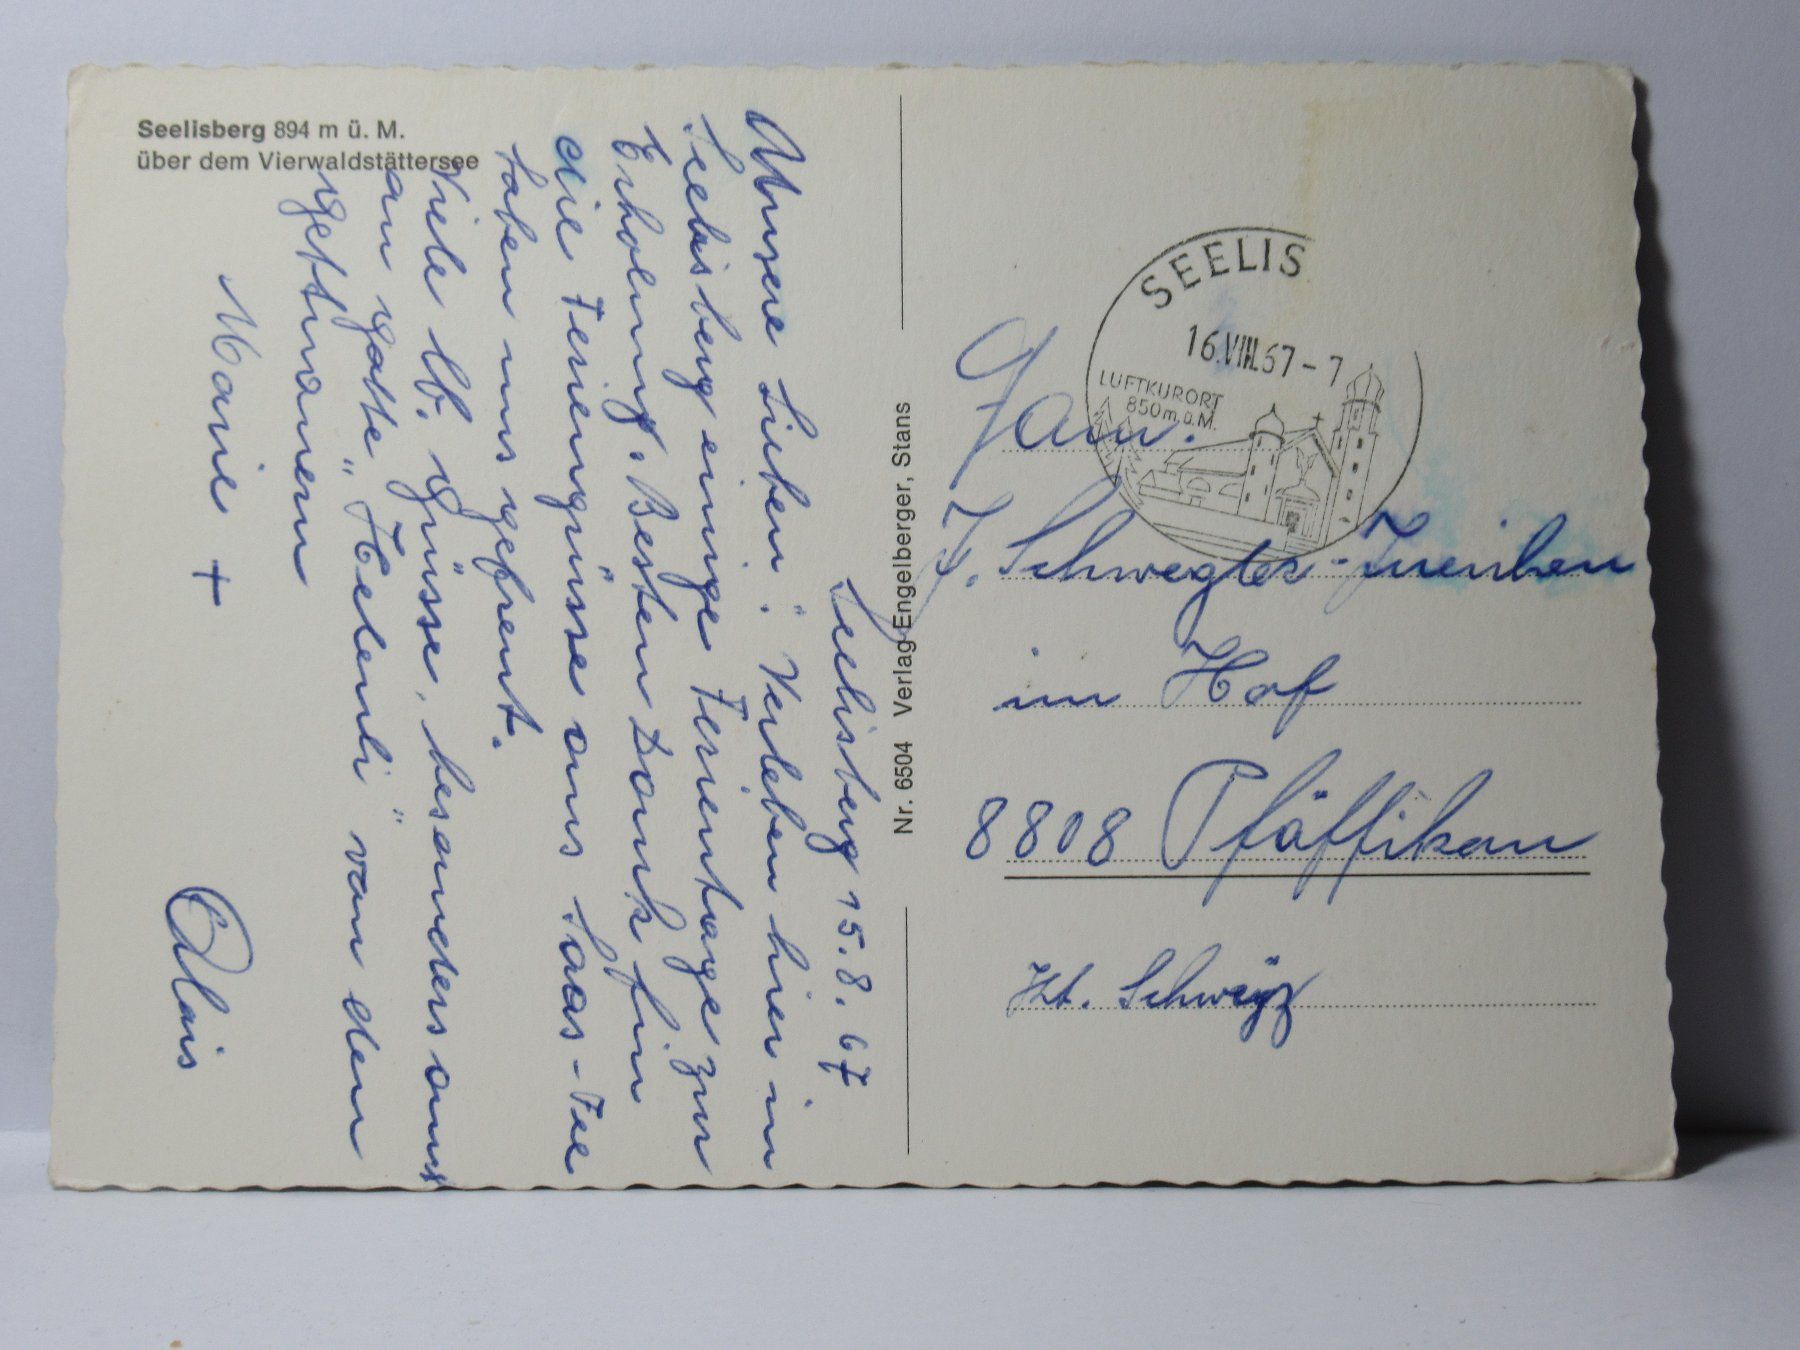 Seelisberg 894 m ü. M.
über dem Vierwaldstättersee
Seelisberg 15.8.67
Unsere Lieben! Verleben hier in
Seelisberg einige Ferientage zur
Erholung. Besten Dank für
die Feriengrüsse aus Saas-Fee
haben uns gefreut.
Viele lb. Grüsse, besonders aus
an Gotte "Helenli" von den
Marie +
Alois
Nr. 6504 Verlag Engelberger, Stans
SEELIS
16.VIII.67-7
LUFTKURORT
850 m.ü.M.
Fam.
J. Schwegler-
im Hof
8808 Pfäffikon
Kt. Schwyz